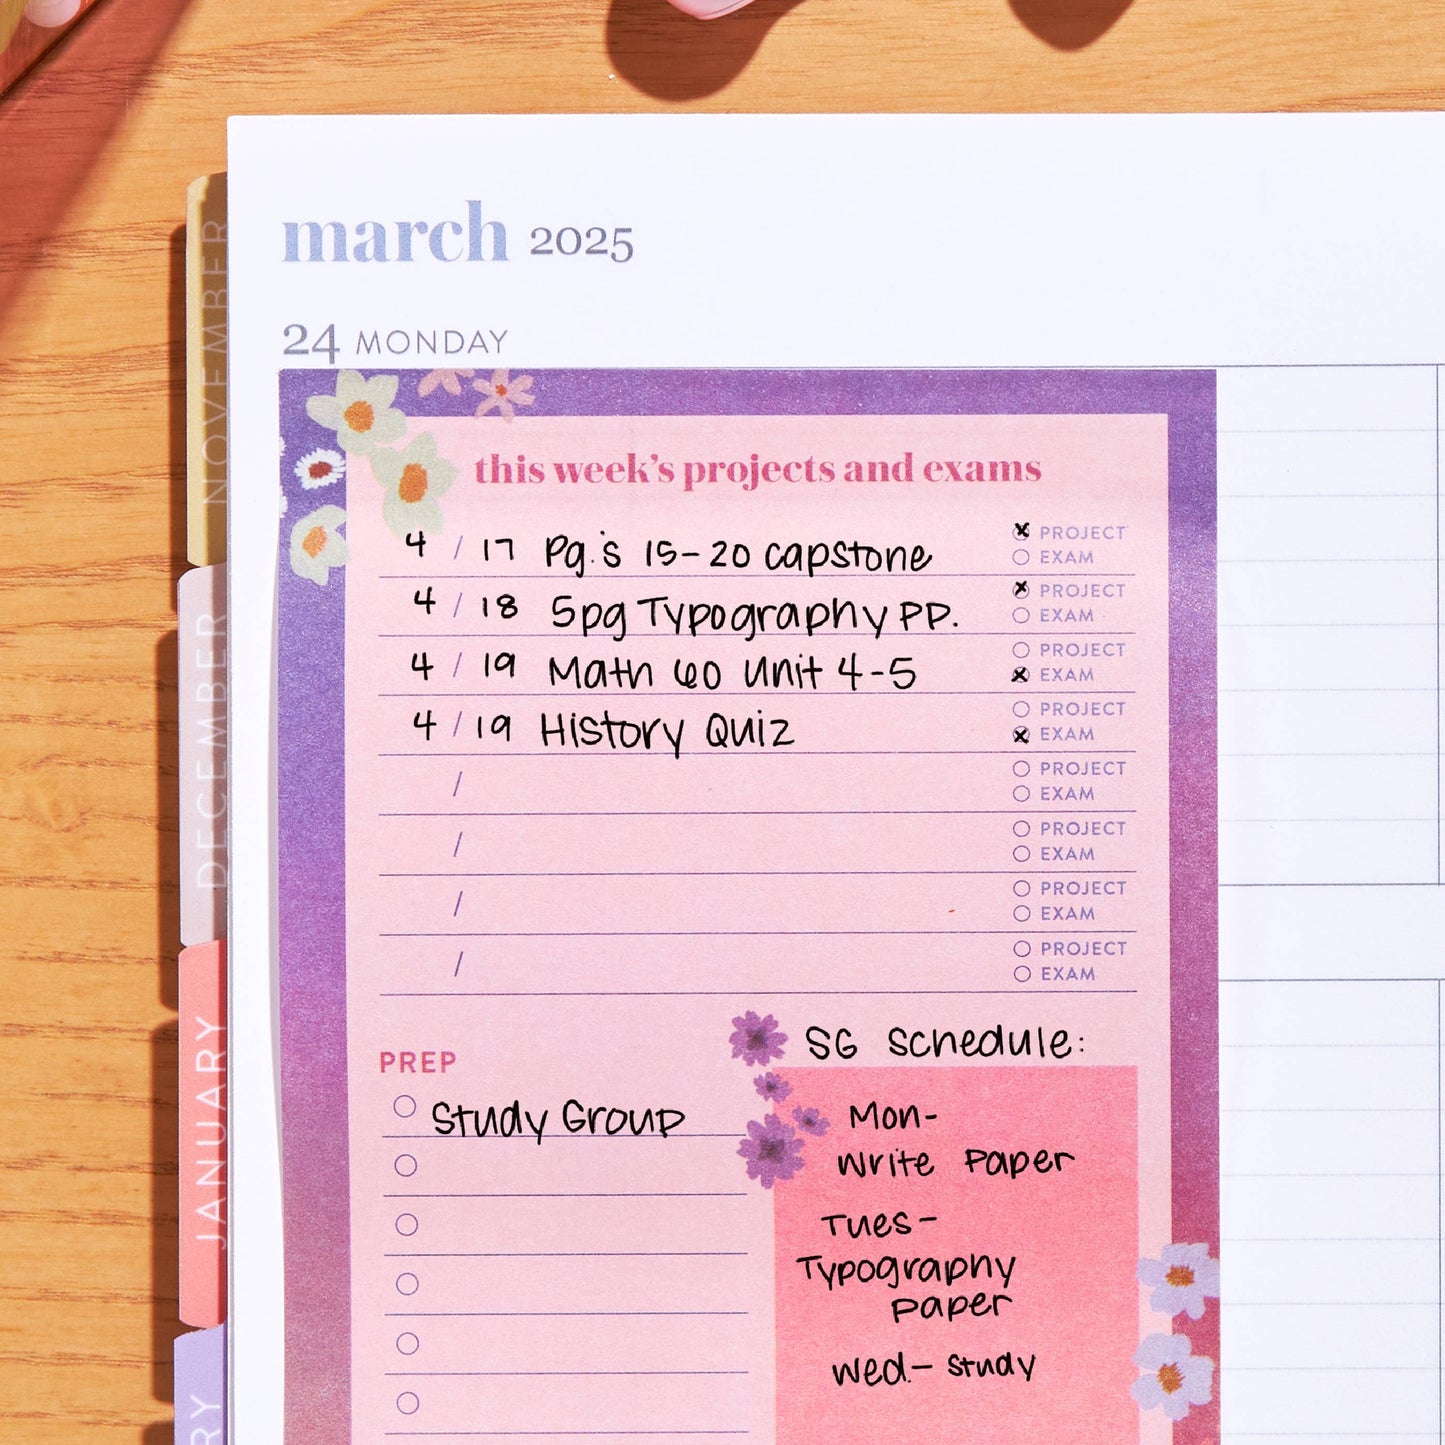 march 2025
24 MONDAY
this week's projects and exams
4 / 17 Pg.'s 15-20 capstone
PROJECT
EXAM
4 / 18 5pg Typography PP.
PROJECT
EXAM
4 / 19 Math 60 Unit 4-5
PROJECT
EXAM
4 / 19 History Quiz
PROJECT
EXAM
/
PROJECT
EXAM
/
PROJECT
EXAM
/
PROJECT
EXAM
/
PROJECT
EXAM
PREP
Study Group
SG Schedule:
Mon-
Write Paper
Tues-
Typography
paper
Wed.- Study
NOVEMBER
DECEMBER
JANUARY
RY